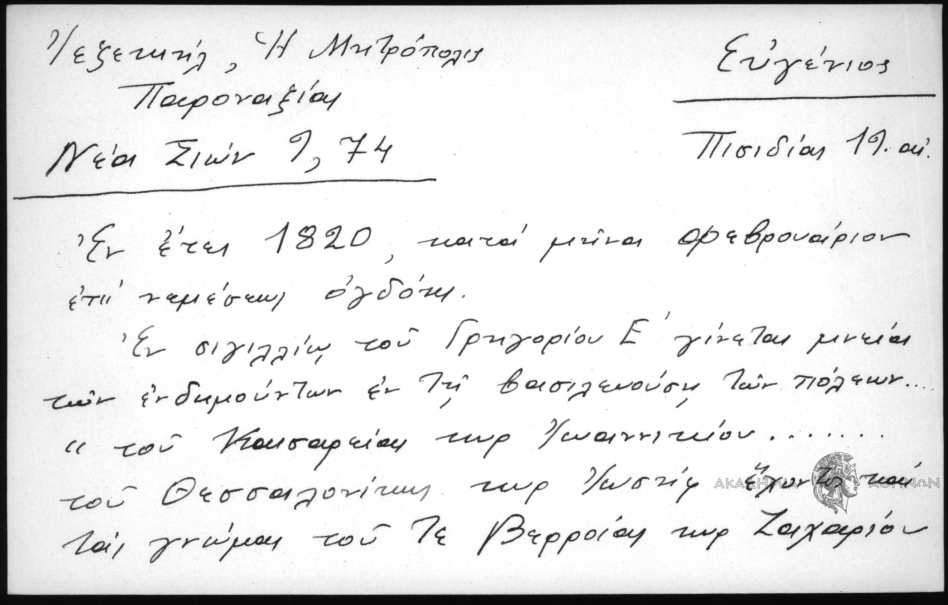 Ἰεζεκιήλ, Ἡ Μητρόπολις
Παροναξίας
Νέα Σιών 9, 74
Εὐγένιος
Πισιδίας 19. αἰ.
Ἐν ἔτει 1820, κατά μῆνα Φεβρουάριον
ἐπί νεμέσεως ὀγδόης.
Ἐν σιγιλλίῳ τοῦ Γρηγορίου Ε΄ γίνεται μνεία
τῶν ἐνδημούντων ἐν τῇ βασιλευούσῃ τῶν πόλεων....
" τοῦ Καισαρείας κυρ Ἰωαννικίου.......
τοῦ Θεσσαλονίκης κυρ Ἰωσήφ ἔχοντος καί
τάς γνώμας τοῦ τε Βερροίας κυρ Ζαχαρίου
ΑΚΑΔΗΜΙΑ ΑΘΗΝΩΝ